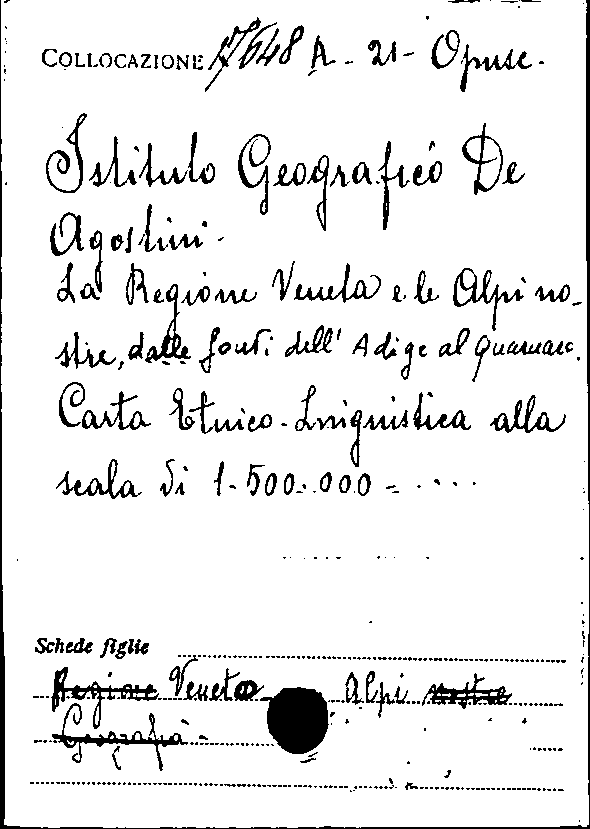 COLLOCAZIONE 17648 A - 21 - Opusc.
Istituto Geografico De
Agostini.
La Regione Veneta e le Alpi no-
stre, dalle fonti dell' Adige al Quarnaro.
Carta Etnico-Linguistica alla
scala di 1-500.000 = . . . .
Schede figlie
Regione Veneto - Alpi nostre
Geografia -